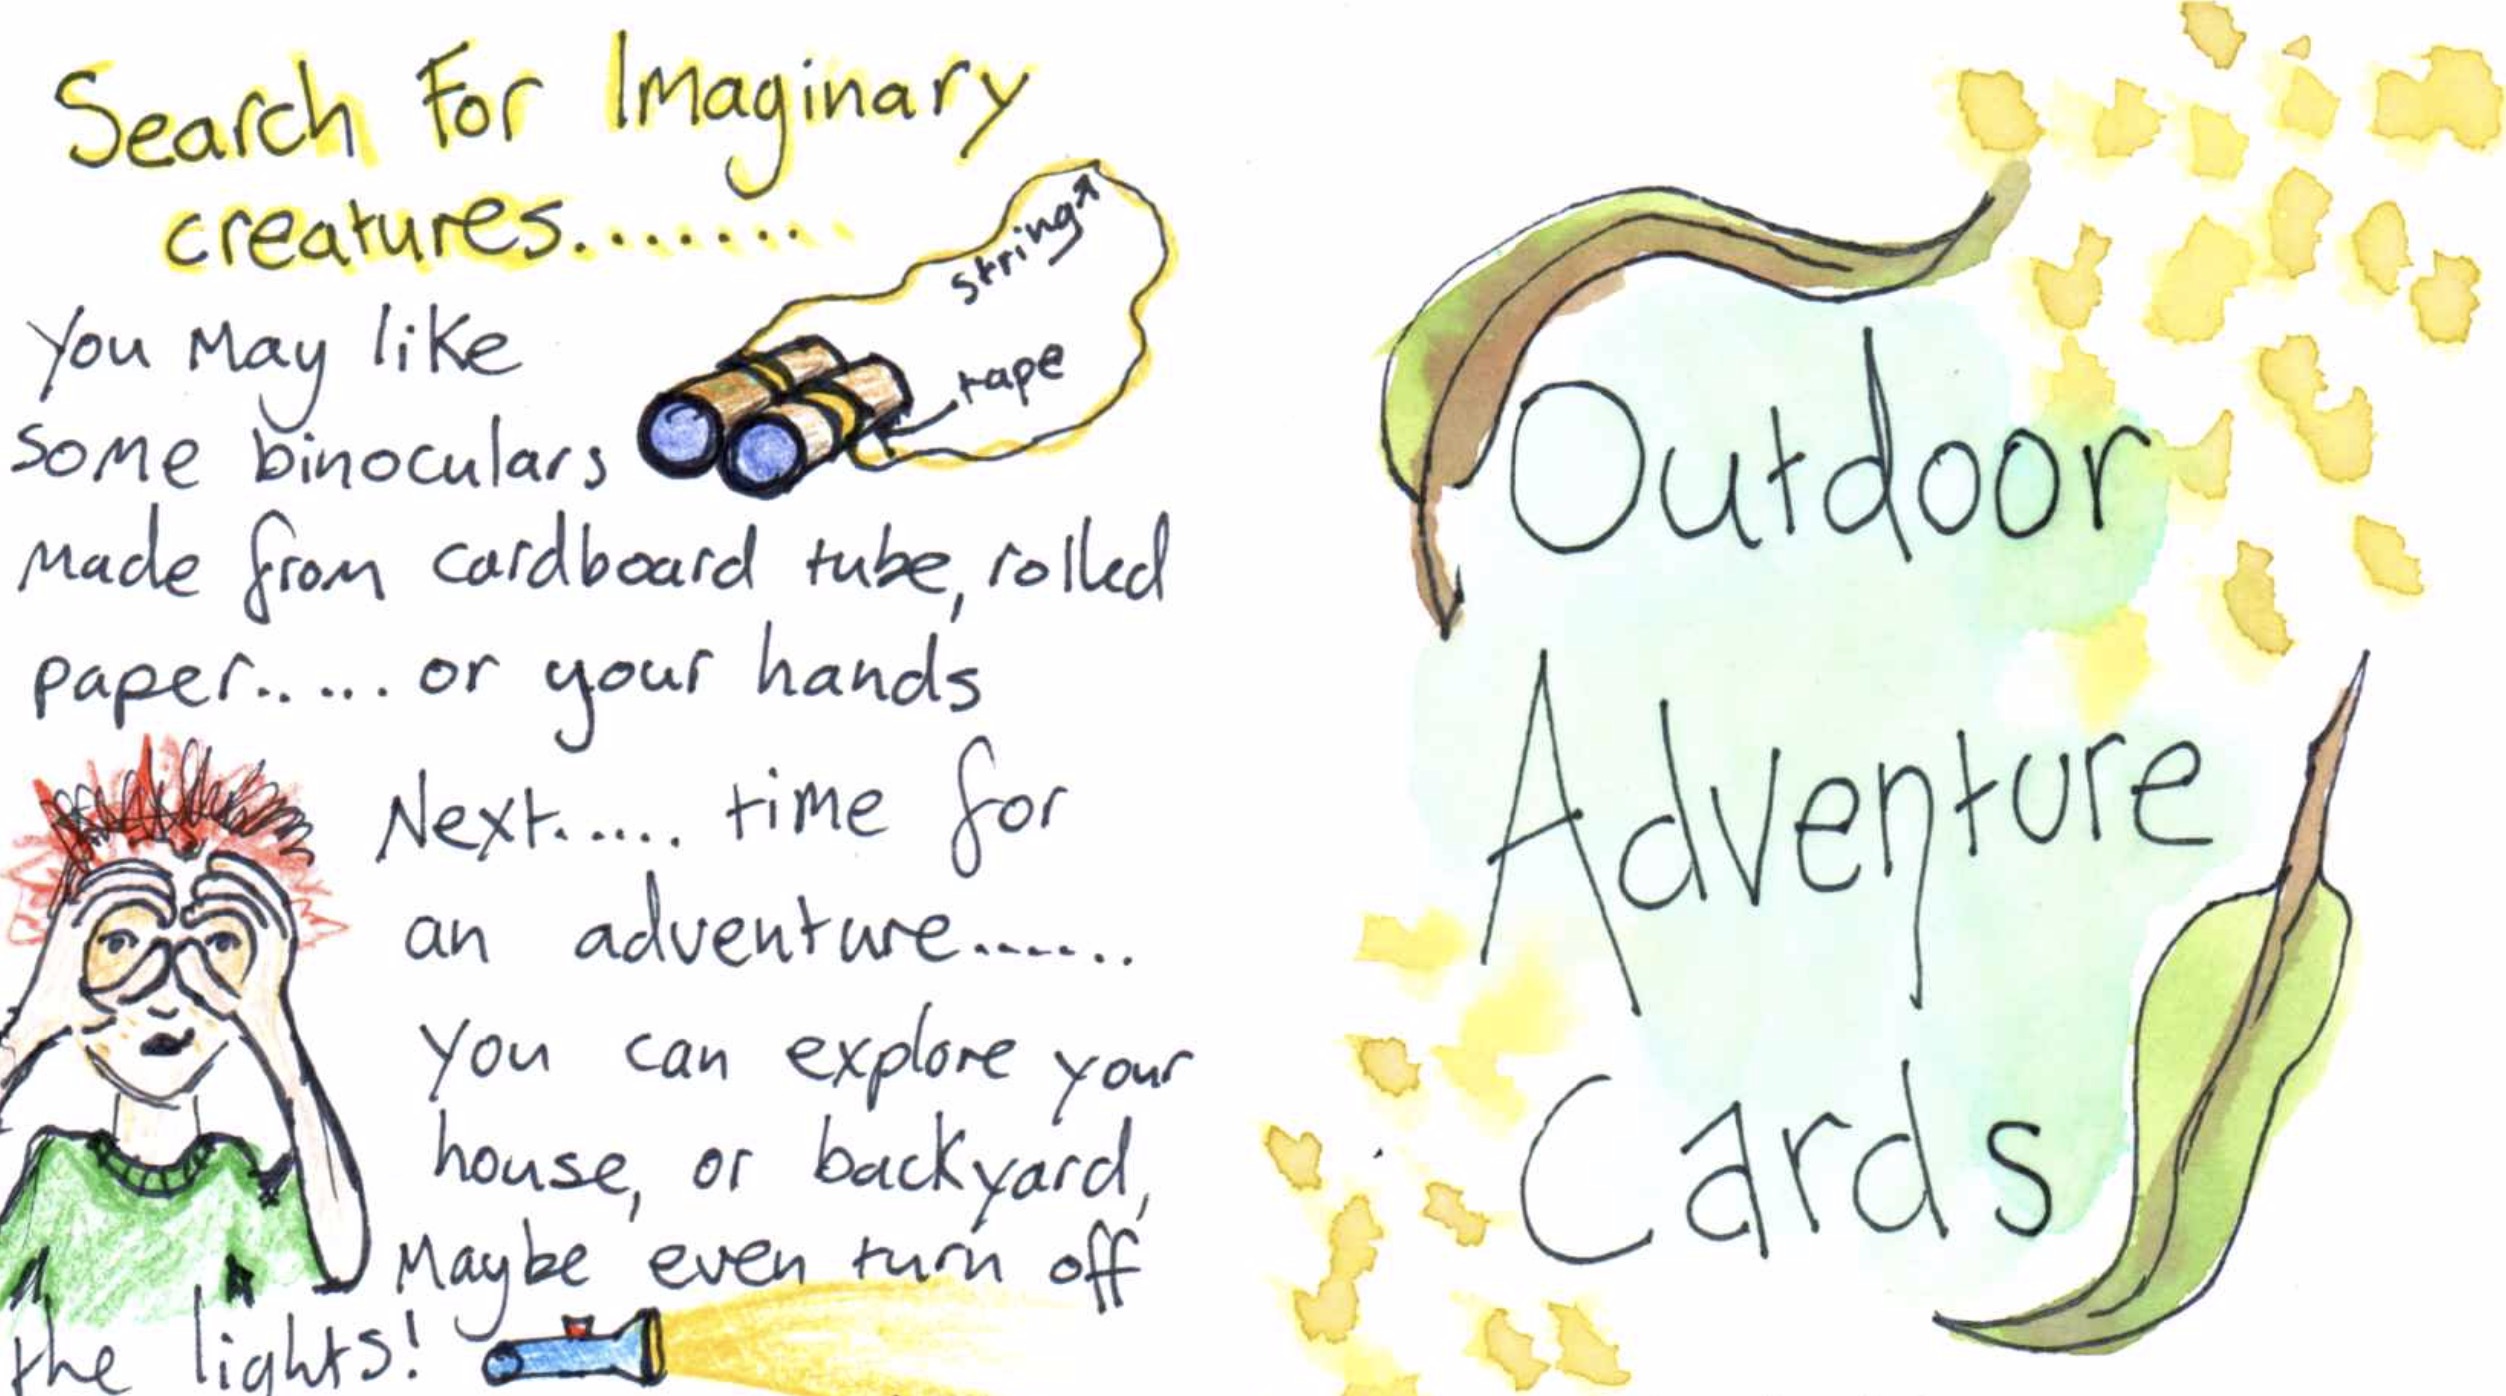 Search For Imaginary
creatures........
string
tape
You May like
some binoculars
Made from cardboard tube, rolled
paper..... or your hands
Next...... time for
an adventure.......
You can explore your
house, or backyard,
Maybe even turn off
the lights!
Outdoor
Adventure
Cards